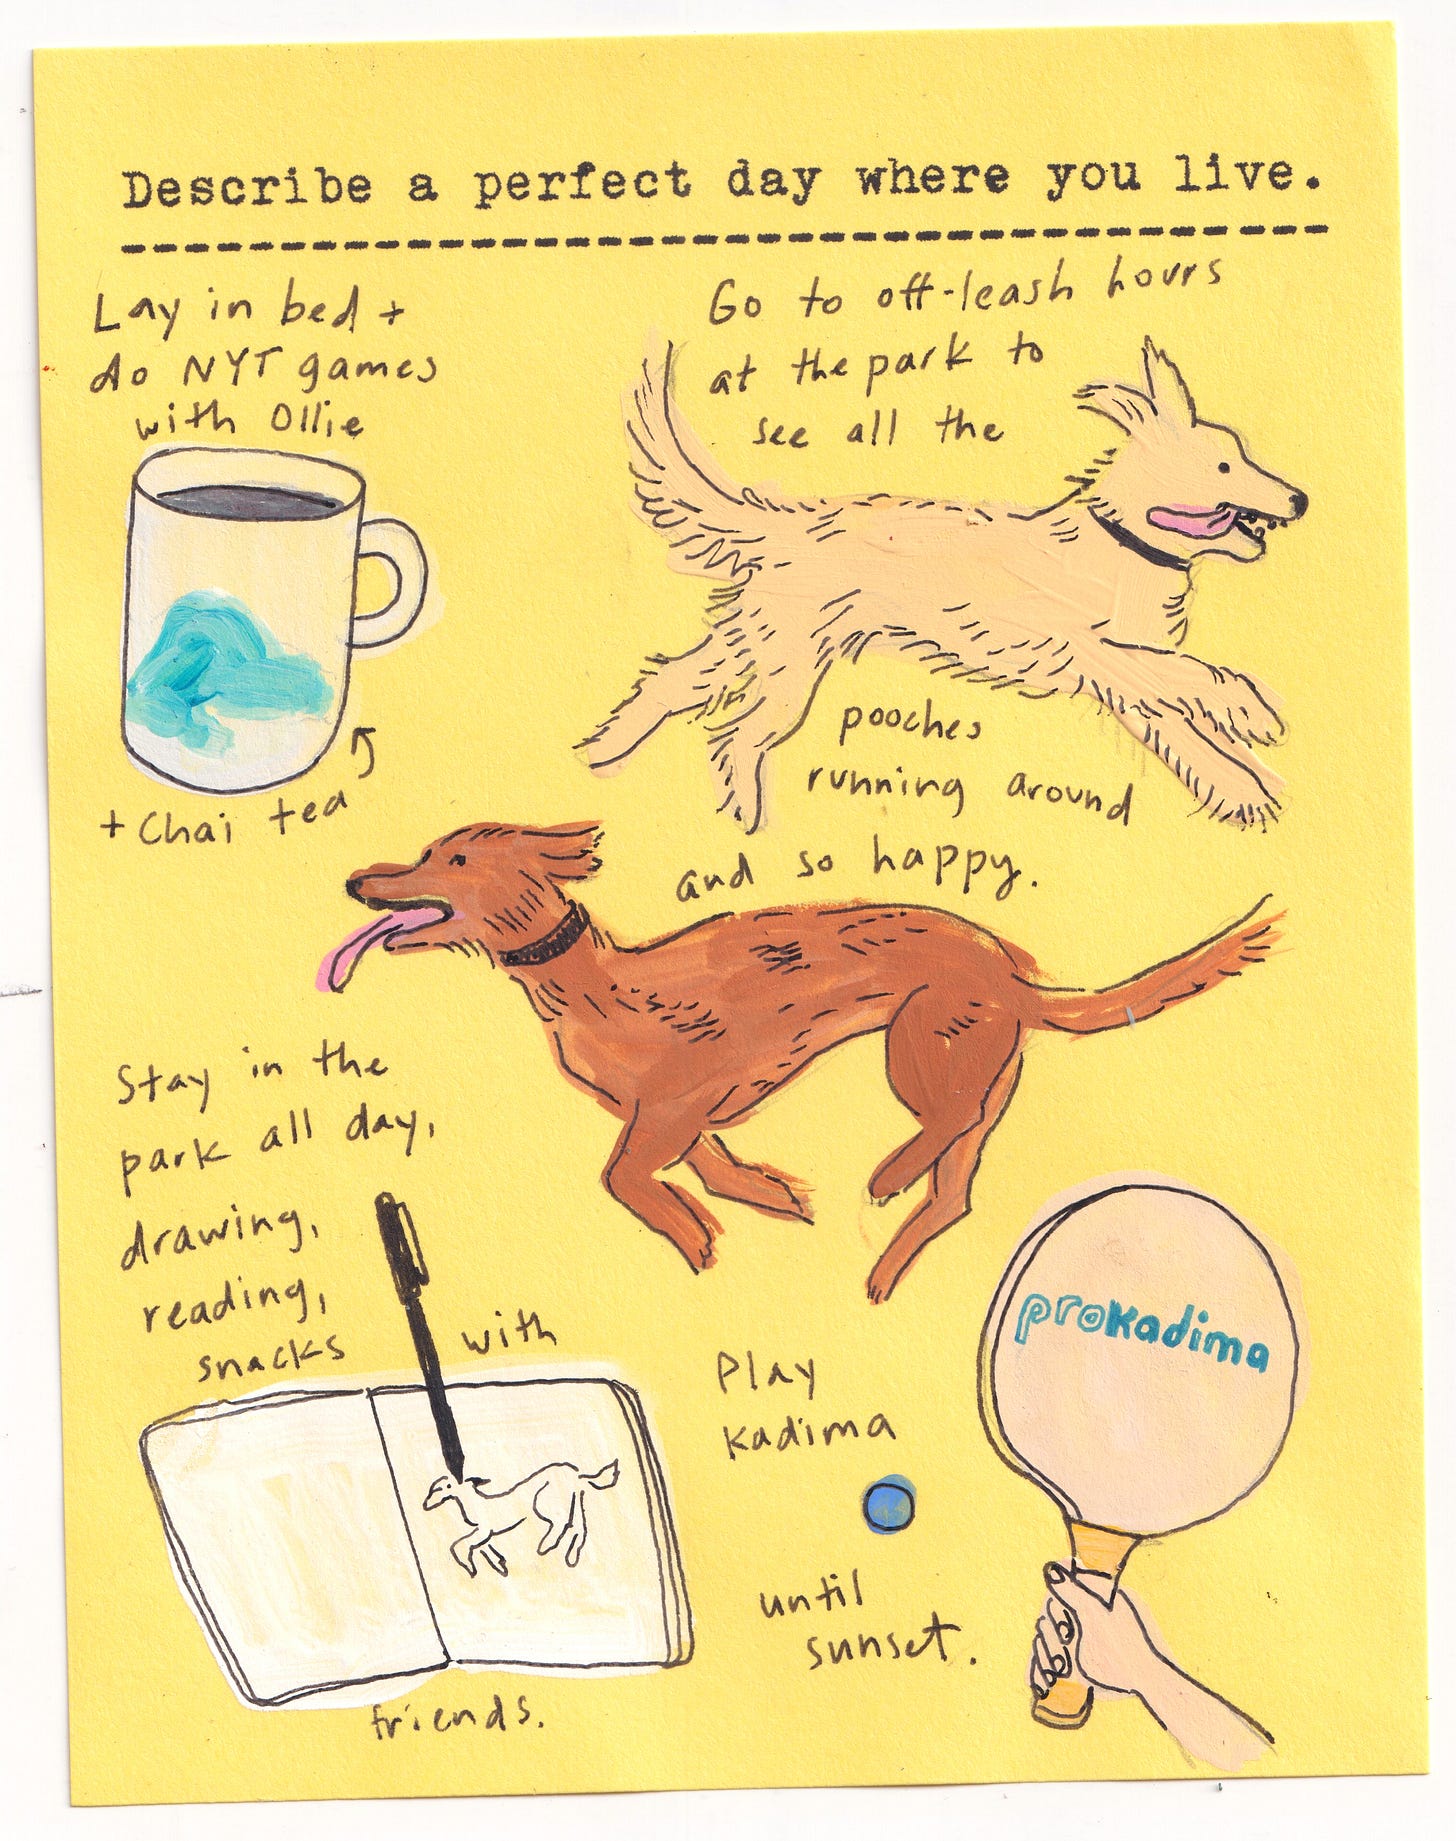 Describe a perfect day where you live.
Lay in bed +
do NYT games
with Ollie
+ Chai tea
Go to off-leash hours
at the park to
see all the
pooches
running around
and so happy.
Stay in the
park all day,
drawing,
reading,
snacks
with
friends.
Play
kadima
until
sunset.
prokadima